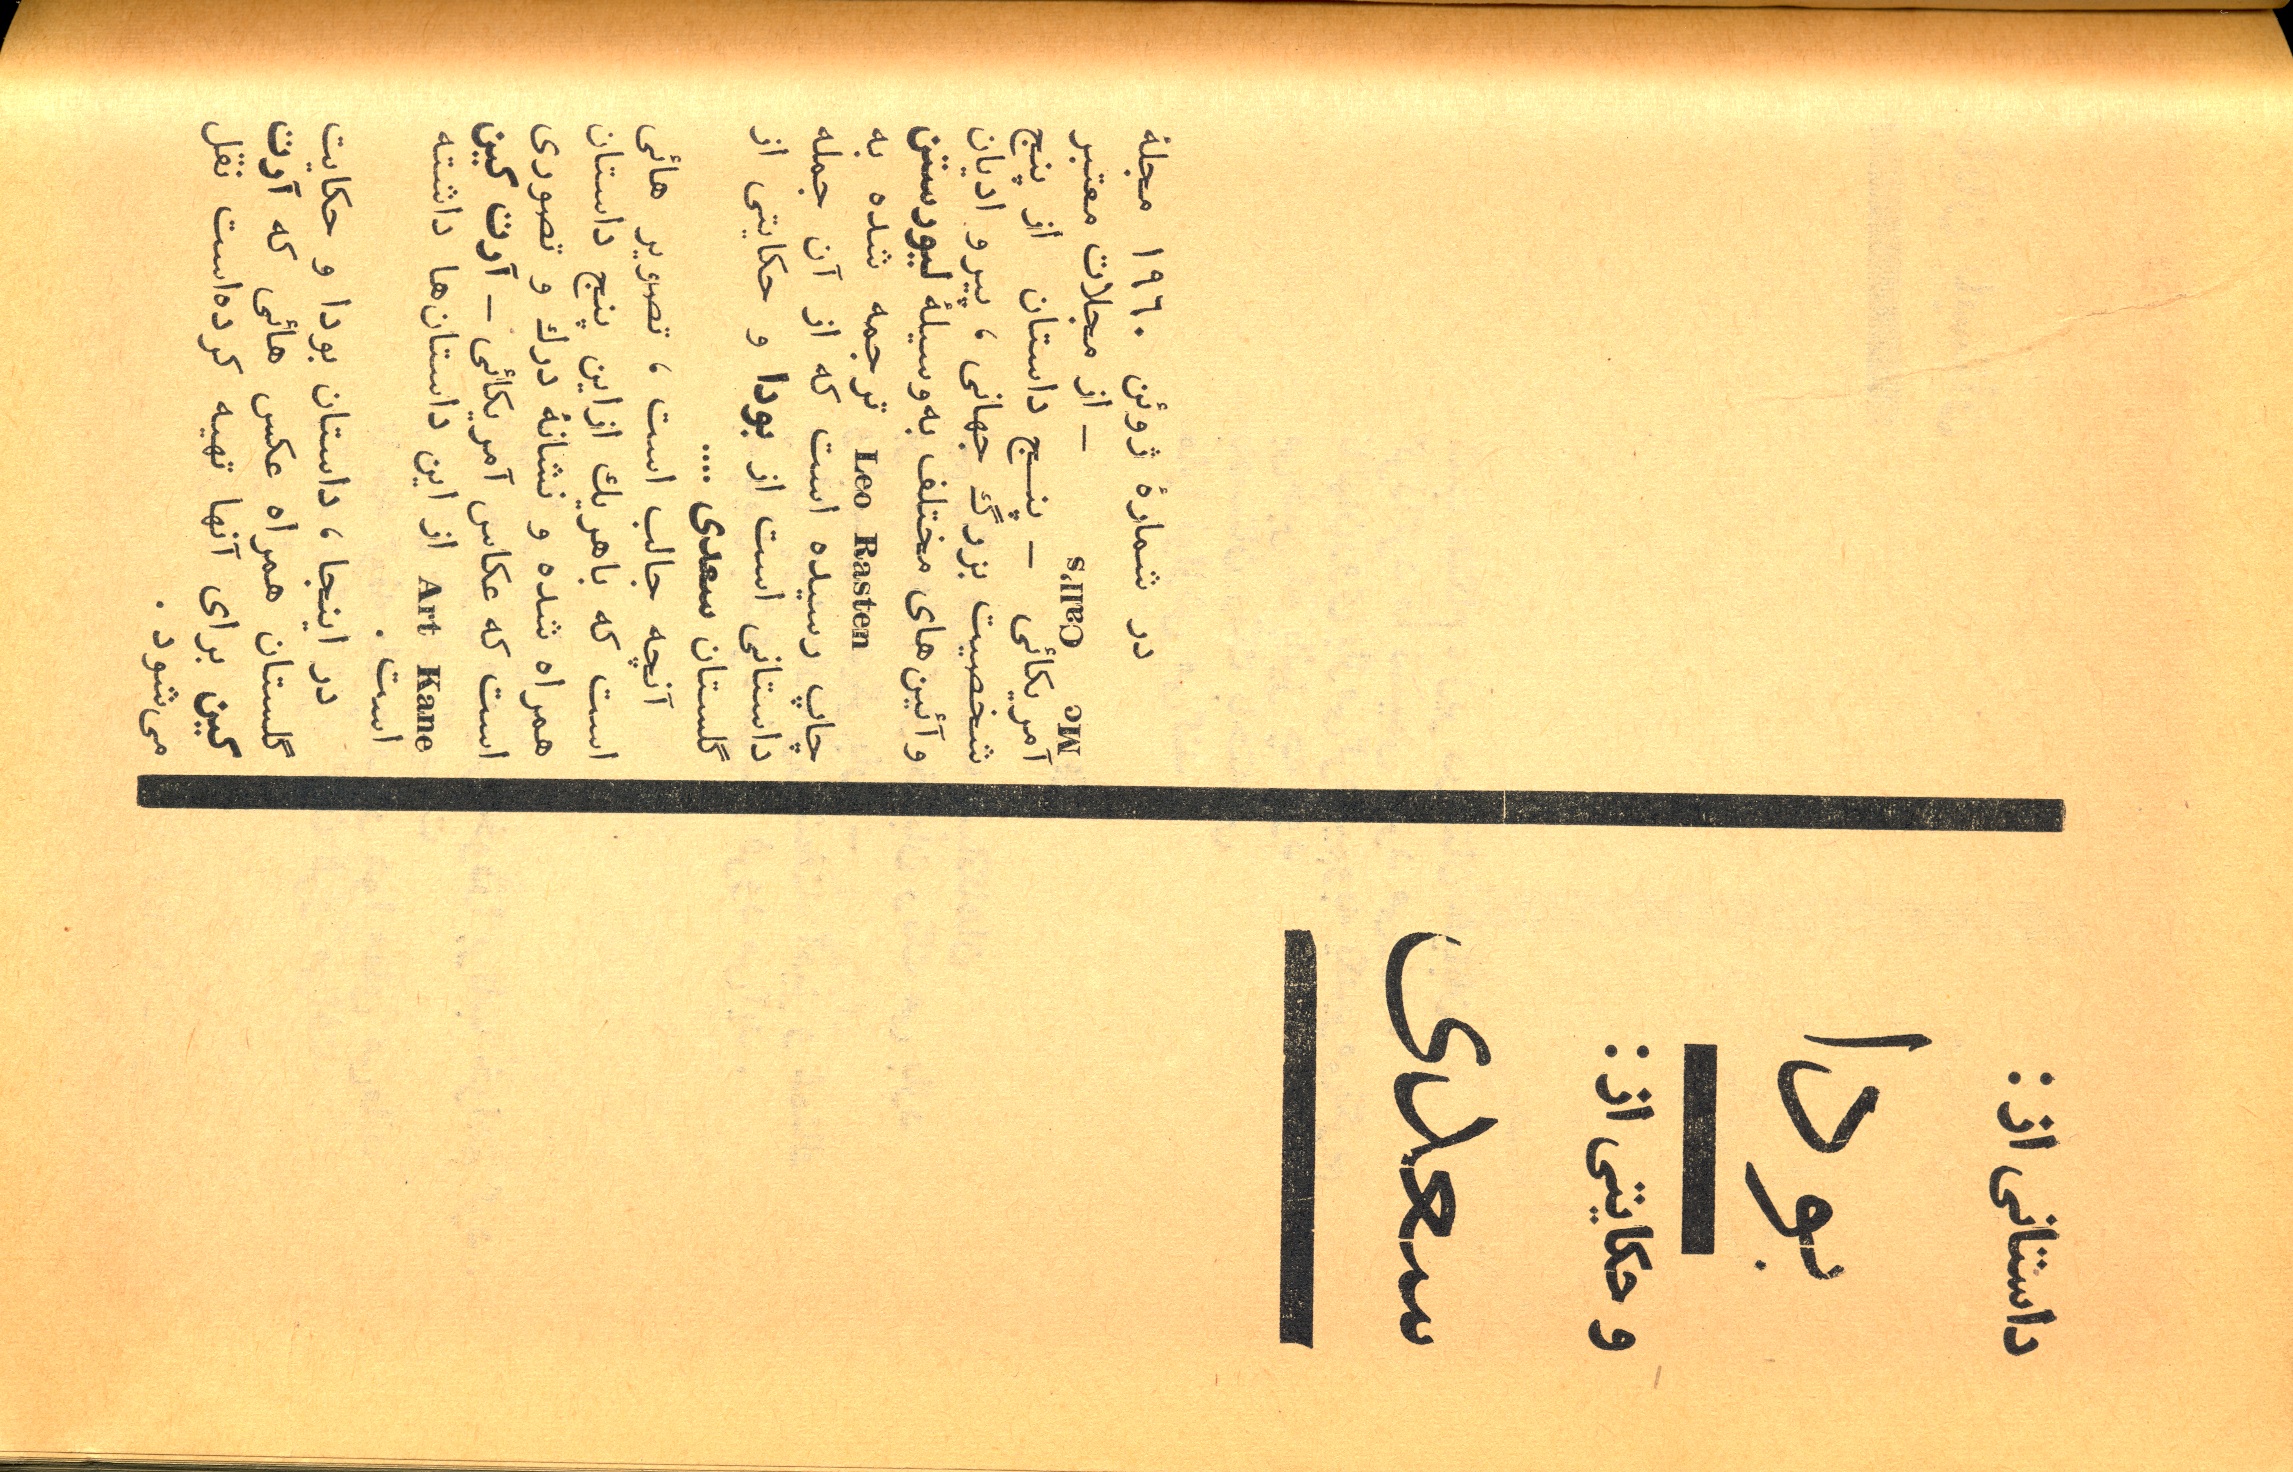 داستانی از:
بودا
و حکایتی از:
سعدی
در شمارهٔ ژوئن ۱۹٦۰ مجلهٔ
Mc Call's – از مجلات معتبر
آمریکائی – پنـج داستان از پنج
شخصیت بزرگ جهانی ، پیرو ادیان
و آئین‌های مختلف به‌وسیلهٔ لیورستن
Leo Rasten ترجمه شده به
چاپ رسیده است که از آن جمله
داستانی است از بودا و حکایتی از
گلستان سعدی ....
آنچه جالب است ، تصویر هائی
است که باهریك ازاین پنج داستان
همراه شده و نشانهٔ درك و تصوری
است که عکاس آمریکائی – آرت کین
Art Kane از این داستان‌ها داشته
است .
در اینجا ، داستان بودا و حکایت
گلستان همراه عکس هائی که آرت
کین برای آنها تهیه کرده‌است نقل
می‌شود .